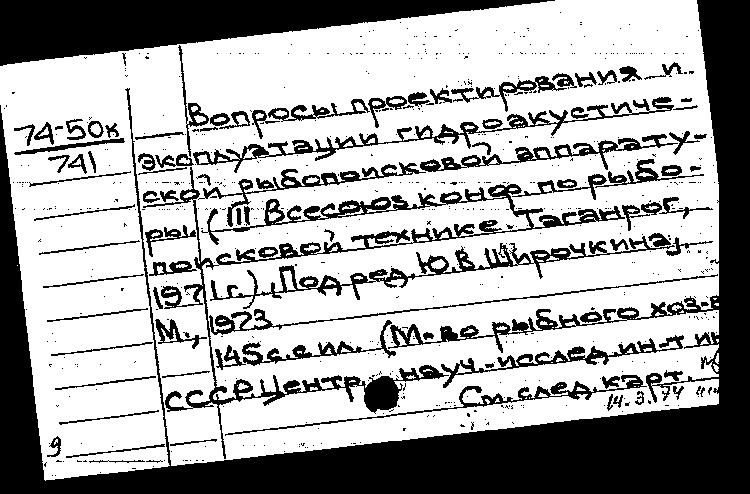 74-50к
741
Вопросы проектирования и
эксплуатации гидроакустиче-
ской рыбопоисковой аппарату-
ры. (III Всесоюз. конф. по рыбо-
поисковой технике. Таганрог,
1971г.). Под ред. Ю.В. Широчкина,.
М., 1973.
145с. с ил. (М-во рыбного хоз-в
СССР. Центр. науч.-исслед. ин-т ин
См. след. карт.
14.3.74
9